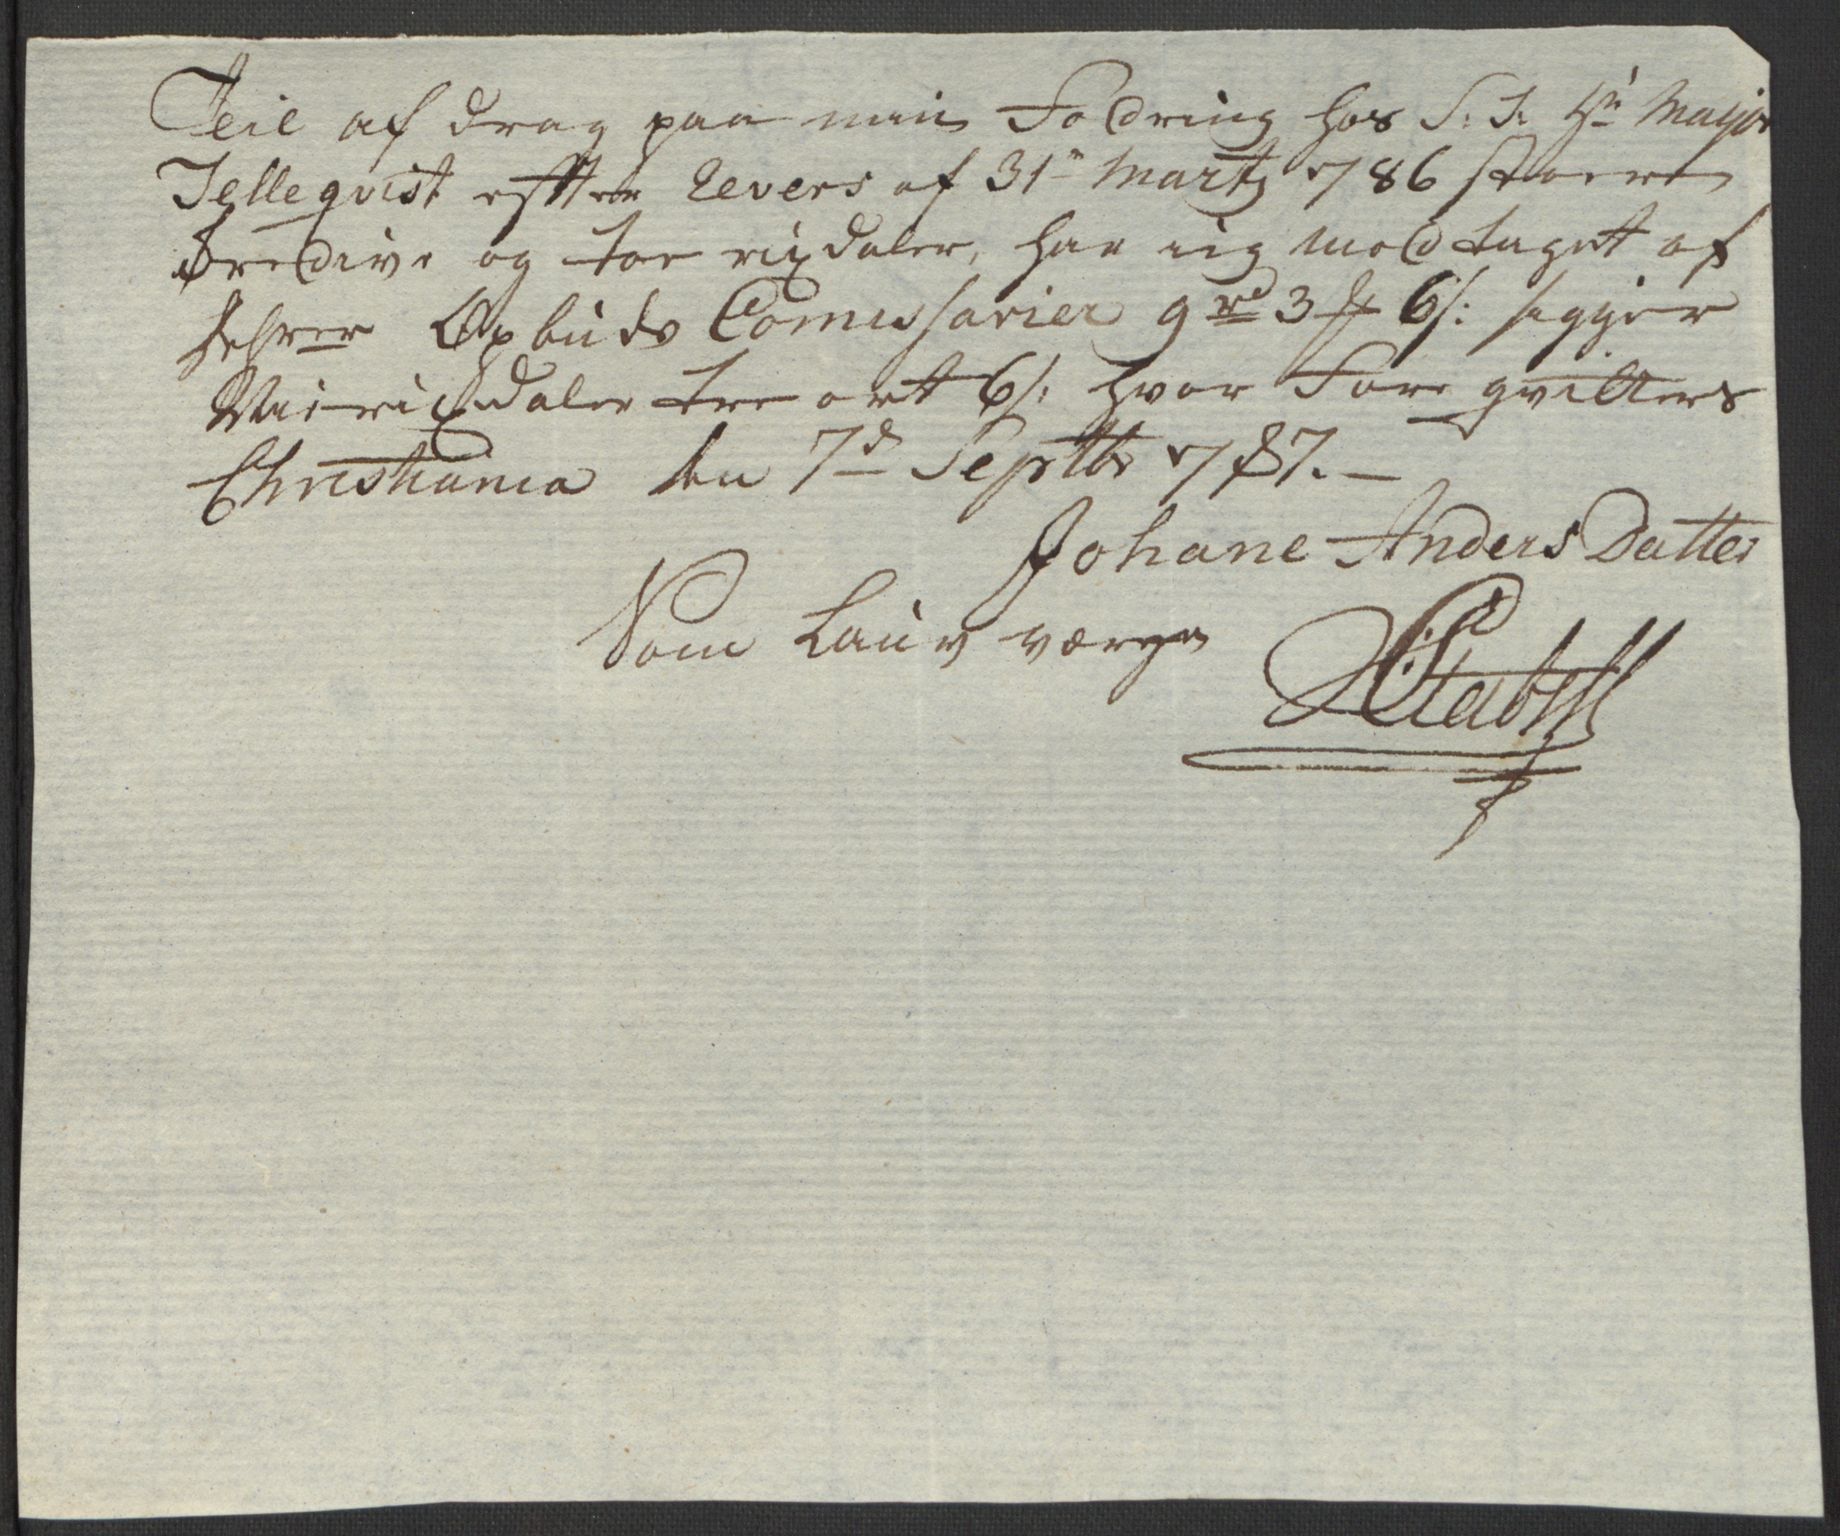 Teil af drag paa min Fodring hos S: T. Hr Major
Telleqvist effter Revers af 31te Martj 1786 storen
tredive og toe rixdaler, har iig modtaget af
Hehrer Opbuds Comissarier 9 rd 3 ort 6 s: sigger
Nie rixdaler tre ort 6 s: hvor Fore qvitteres
Christiania den 7d Septbr 1787. —
Johane Anders Datter
Som Lauv værge
Stabell